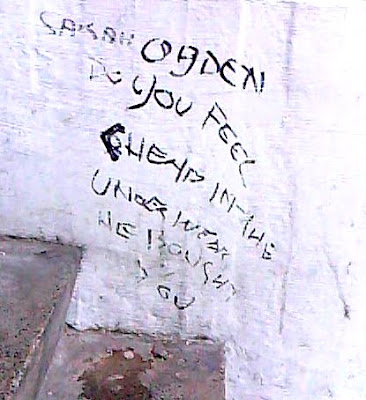 SARAH OGDEN
DO YOU FEEL
CHEAP IN THE
UNDERWEAR
HE BOUGHT
YOU